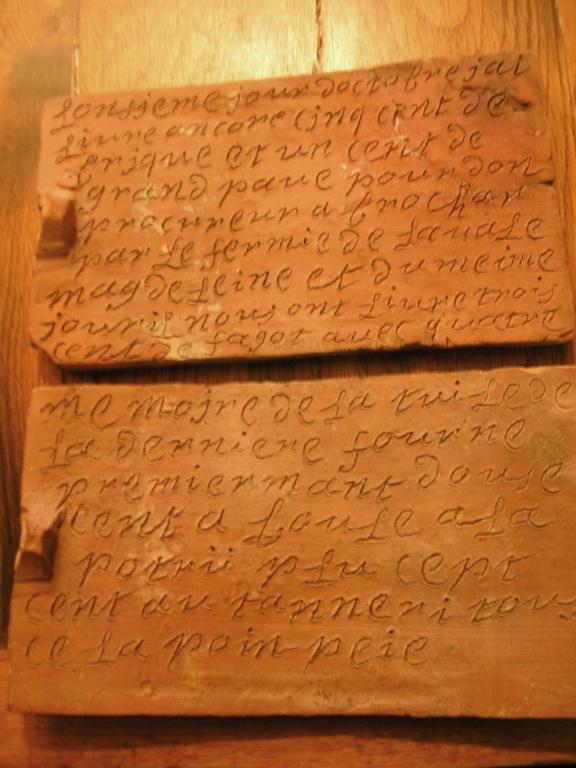 lonsieme jour doctobre jai
livre ancore cinq cent de
brique et un cent de
grand pave pour don
procureur a brochar
par le fermie de lavale
magdeleine et du meime
jour il nous ont livre trois
cent de fagot avec quatre
me moire de la tuile de
la derniere fourne
premiermant douse
cent a louse a la
potrii plu cept
cent au tanneri tous
ce la poin peie